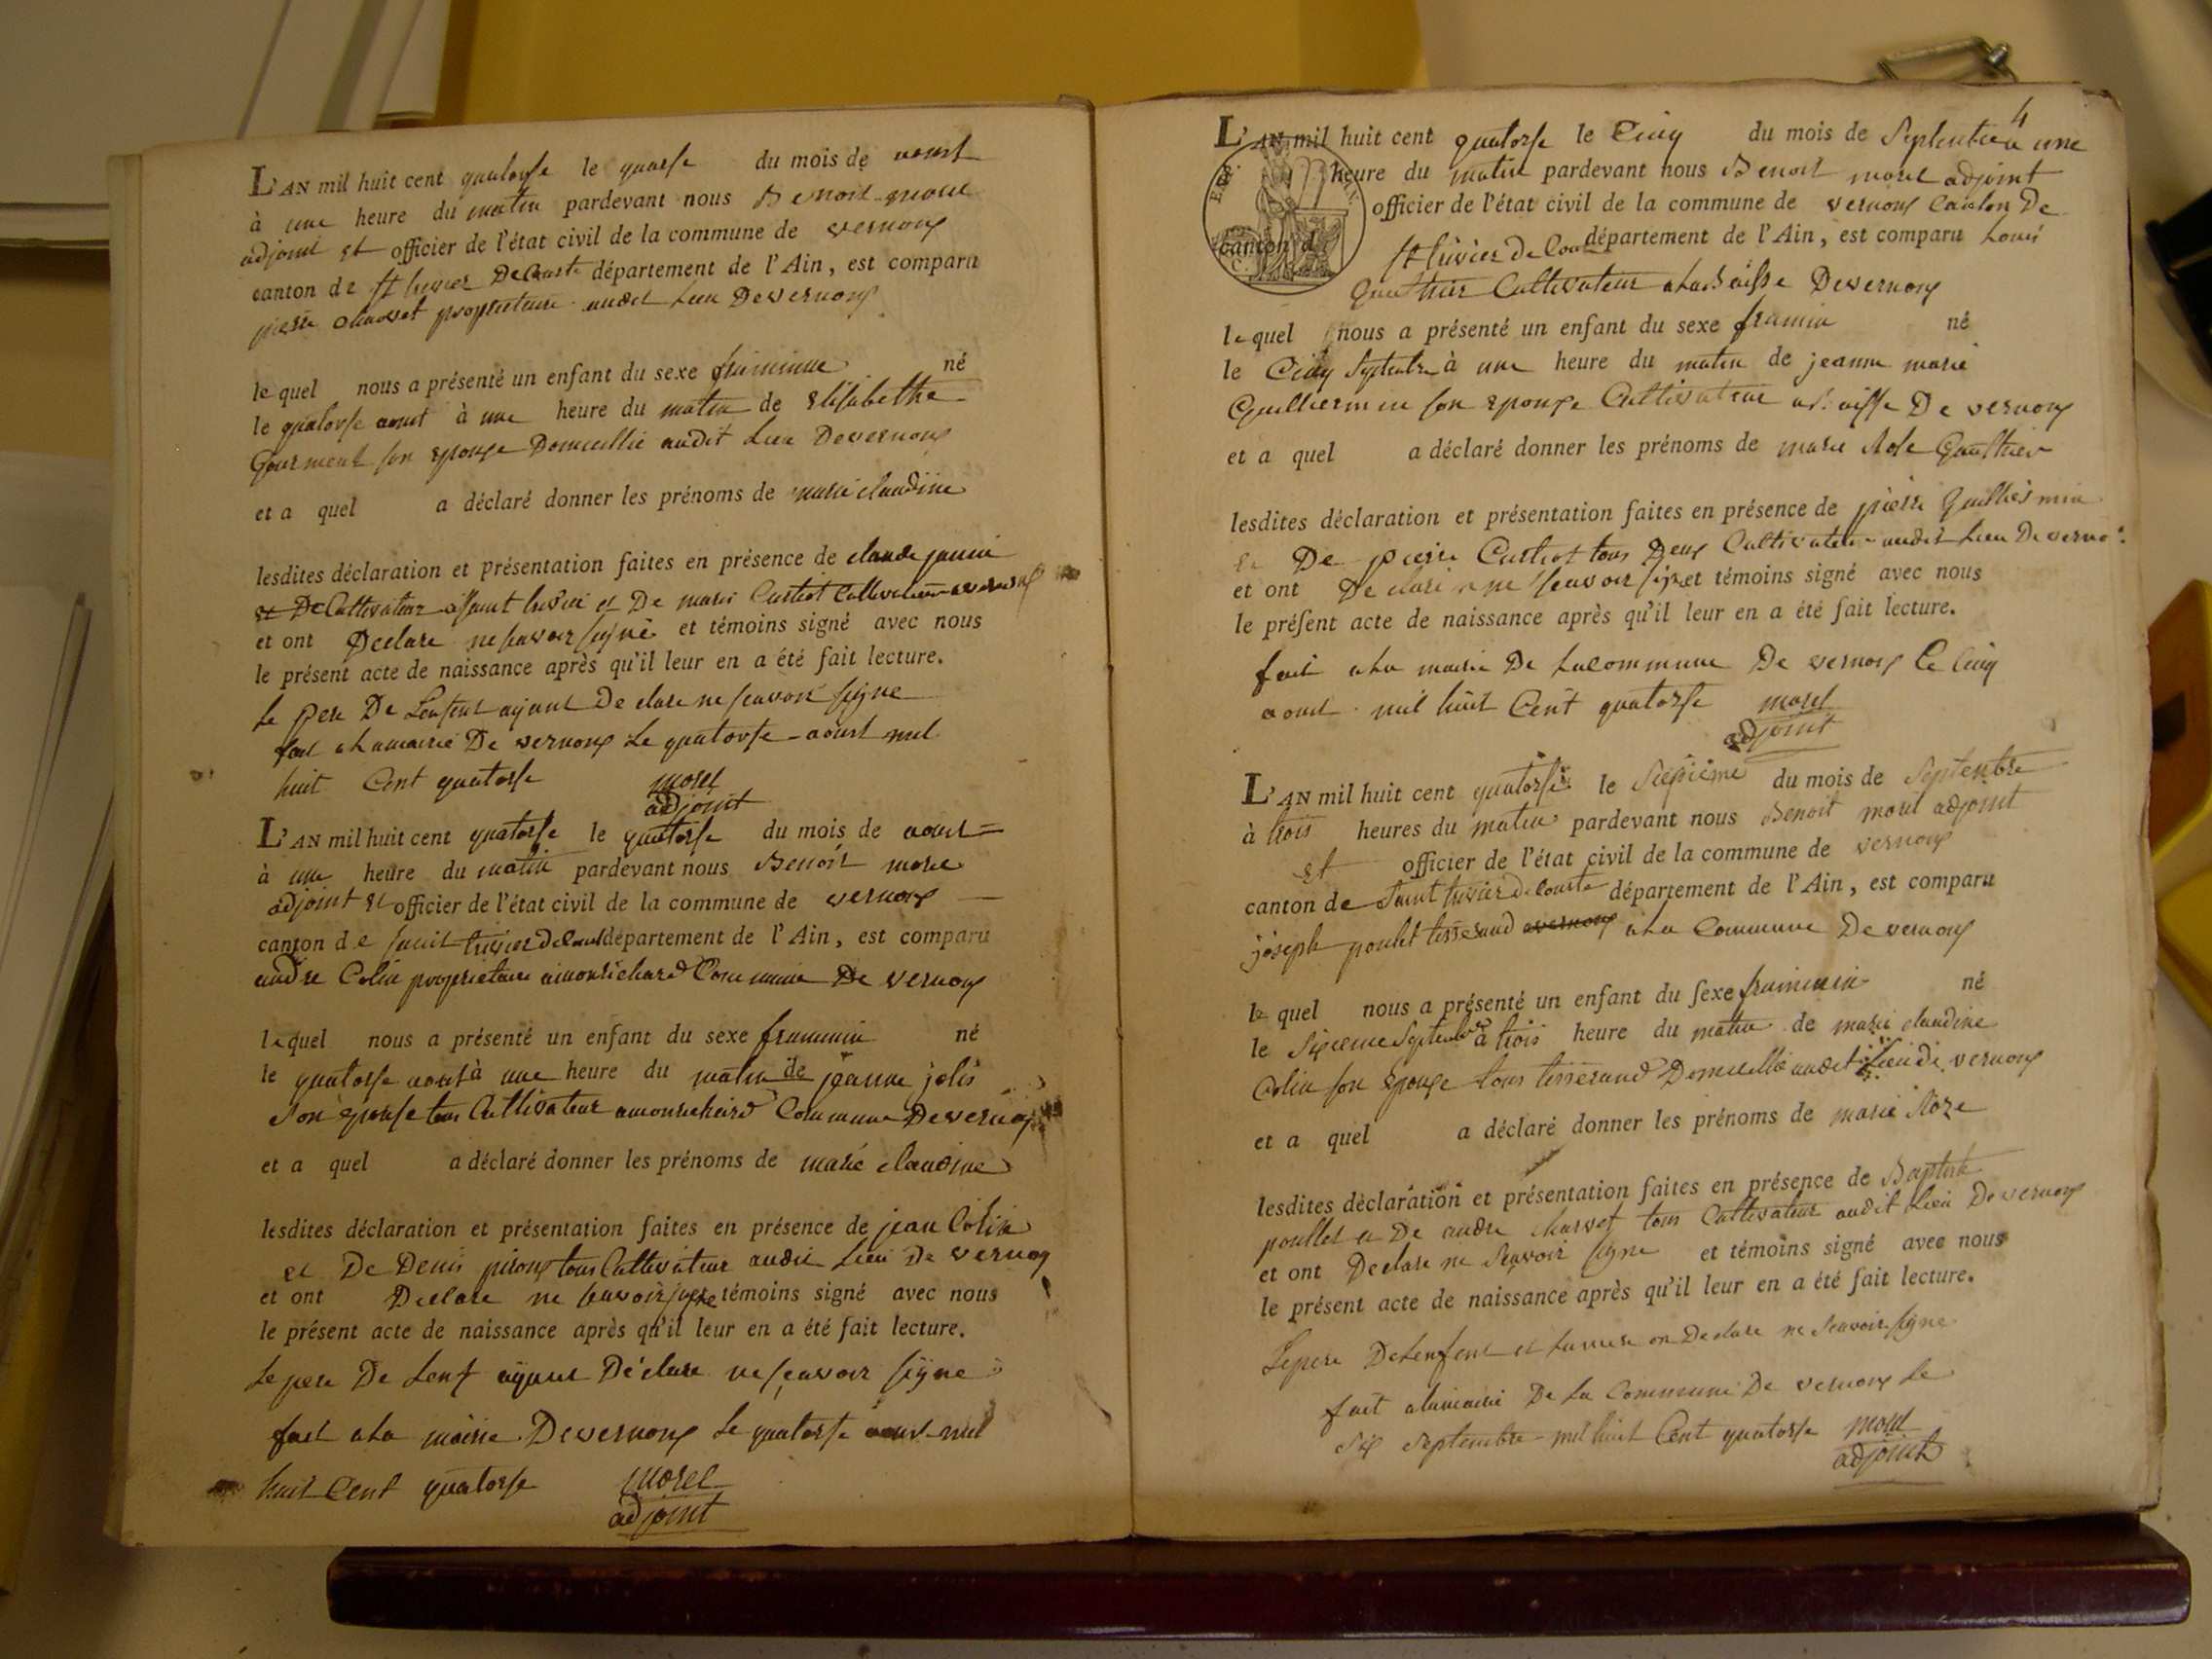 L'AN mil huit cent quatorse le quatorse du mois de aoust
à une heure du matin pardevant nous Benoit morel
adjoint et officier de l'état civil de la commune de vernoux
canton de st trivier De Courte département de l'Ain, est comparu
pierre charvet propriétaire audit lieu De vernoux
lequel nous a présenté un enfant du sexe né
le quatorse aoust à une heure du matin de Elisabethe
son epouse Domicillié audit lieu De vernoux
et a quel a déclaré donner les prénoms de marie claudine
lesdites déclaration et présentation faites en présence de claude
Cultivateur et De
et ont Declare ne savoir signé et témoins signé avec nous
le présent acte de naissance après qu'il leur en a été fait lecture.
le pere De Lenfent ayant De clare ne scavoir signe
fait a la mairie De vernoux le quatorse aoust mil
huit Cent quatorse morel
adjoint
L'AN mil huit cent quatorse le quatorse du mois de aoust
à une heure du matin pardevant nous Benoit morel
adjoint et officier de l'état civil de la commune de vernoux
canton de saint trivier De Court département de l'Ain, est comparu
andre Colin proprietaire Commune De vernoux
lequel nous a présenté un enfant du sexe né
le quatorse aoust à une heure du matin de jeanne
Son epouse tous Cultivateur Commune De vernoux
et a quel a déclaré donner les prénoms de marie claudine
lesdites déclaration et présentation faites en présence de jean Colin
et De Denis tous Cultivateur audit lieu De vernoux
et ont Declare ne savoir signe témoins signé avec nous
le présent acte de naissance après qu'il leur en a été fait lecture.
le pere De Lenf ayant Déclare ne scavoir signe
fait a la mairie De vernoux le quatorse aoust mil
huit Cent quatorse morel
adjoint
4
L'AN mil huit cent quatorse le Cinq du mois de Septembre a une
heure du matin pardevant nous Benoit morel adjoint
officier de l'état civil de la commune de vernoux Canton De
canton d st trivier de Court département de l'Ain, est comparu Louis
Gauthier Cultivateur De vernoux
lequel nous a présenté un enfant du sexe né
le Cinq Septembre à une heure du matin de jeanne marie
Guilliermin son epouse Cultivateur De vernoux
et a quel a déclaré donner les prénoms de marie Rose Gauthier
lesdites déclaration et présentation faites en présence de pierre Guilliermin
et De pierre tous Deux Cultivateur audit lieu De verno
et ont De clare ne scavoir signe et témoins signé avec nous
le présent acte de naissance après qu'il leur en a été fait lecture.
fait a la mairie De la commune De vernoux le Cinq
aoust mil huit Cent quatorse morel
adjoint
L'AN mil huit cent quatorse le du mois de Septembre
à trois heures du matin pardevant nous Benoit morel adjoint
et officier de l'état civil de la commune de vernoux
canton de Saint trivier de Courte département de l'Ain, est comparu
joseph poulet tisserand avernoux a la Commune De vernoux
le quel nous a présenté un enfant du sexe né
le Sixieme Septembre à trois heure du matin de marie claudine
Colin son epouse tous tisserand Domicillié audit lieu de vernoux
et a quel a déclaré donner les prénoms de marie Roze
lesdites déclaration et présentation faites en présence de Baptiste
poullet et De andre charvet tous Cultivateur audit lieu De vernoux
et ont Declare ne Scavoir signe et témoins signé avec nous
le présent acte de naissance après qu'il leur en a été fait lecture.
Le pere De Lenfent et on Declare ne Scavoir signe
fait a la mairie De La Commune De vernoux le
Six Septembre mil huit Cent quatorse morel
adjoint